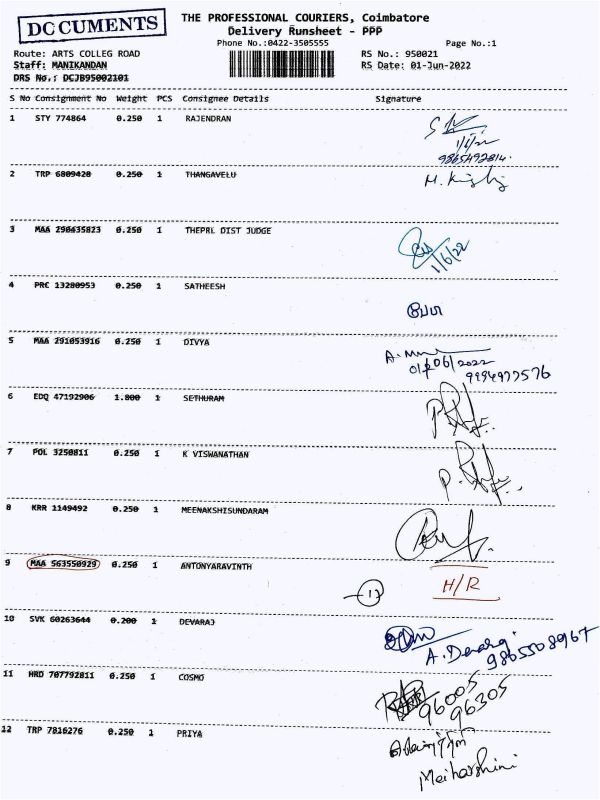 DOCUMENTS
THE PROFESSIONAL COURIERS, Coimbatore
Delivery Runsheet - PPP
Phone No.:0422-3505555
Page No.:1
Route: ARTS COLLEG ROAD
RS No.: 950021
Staff: MANIKANDAN
RS Date: 01-Jun-2022
DRS No.: DCJB95002101
S No Consignment No Weight PCS Consignee Details Signature
1 STY 774864 0.250 1 RAJENDRAN
1/6/22
9865492814.
2 TRP 6809428 0.250 1 THANGAVELU
3 MAA 290435823 0.250 1 THEPRL DIST JUDGE
1/6/22
4 PRC 13280953 0.250 1 SATHEESH
5 MAA 291053916 0.250 1 DIVYA
01/06/2022
9994977576
6 EDQ 47192906 1.800 1 SETHURAM
7 POL 3250811 0.250 1 K VISWANATHAN
8 KRR 1149492 0.250 1 MEENAKSHISUNDARAM
9 MAA 563550929 0.250 1 ANTONYARAVINTH
H/R
10 SVK 60263644 0.200 1 DEVARAJ
A. Devaraj
9865508967
11 HRD 707792811 0.250 1 COSMO
96005
96305
12 TRP 7816276 0.250 1 PRIYA
Meiharshini